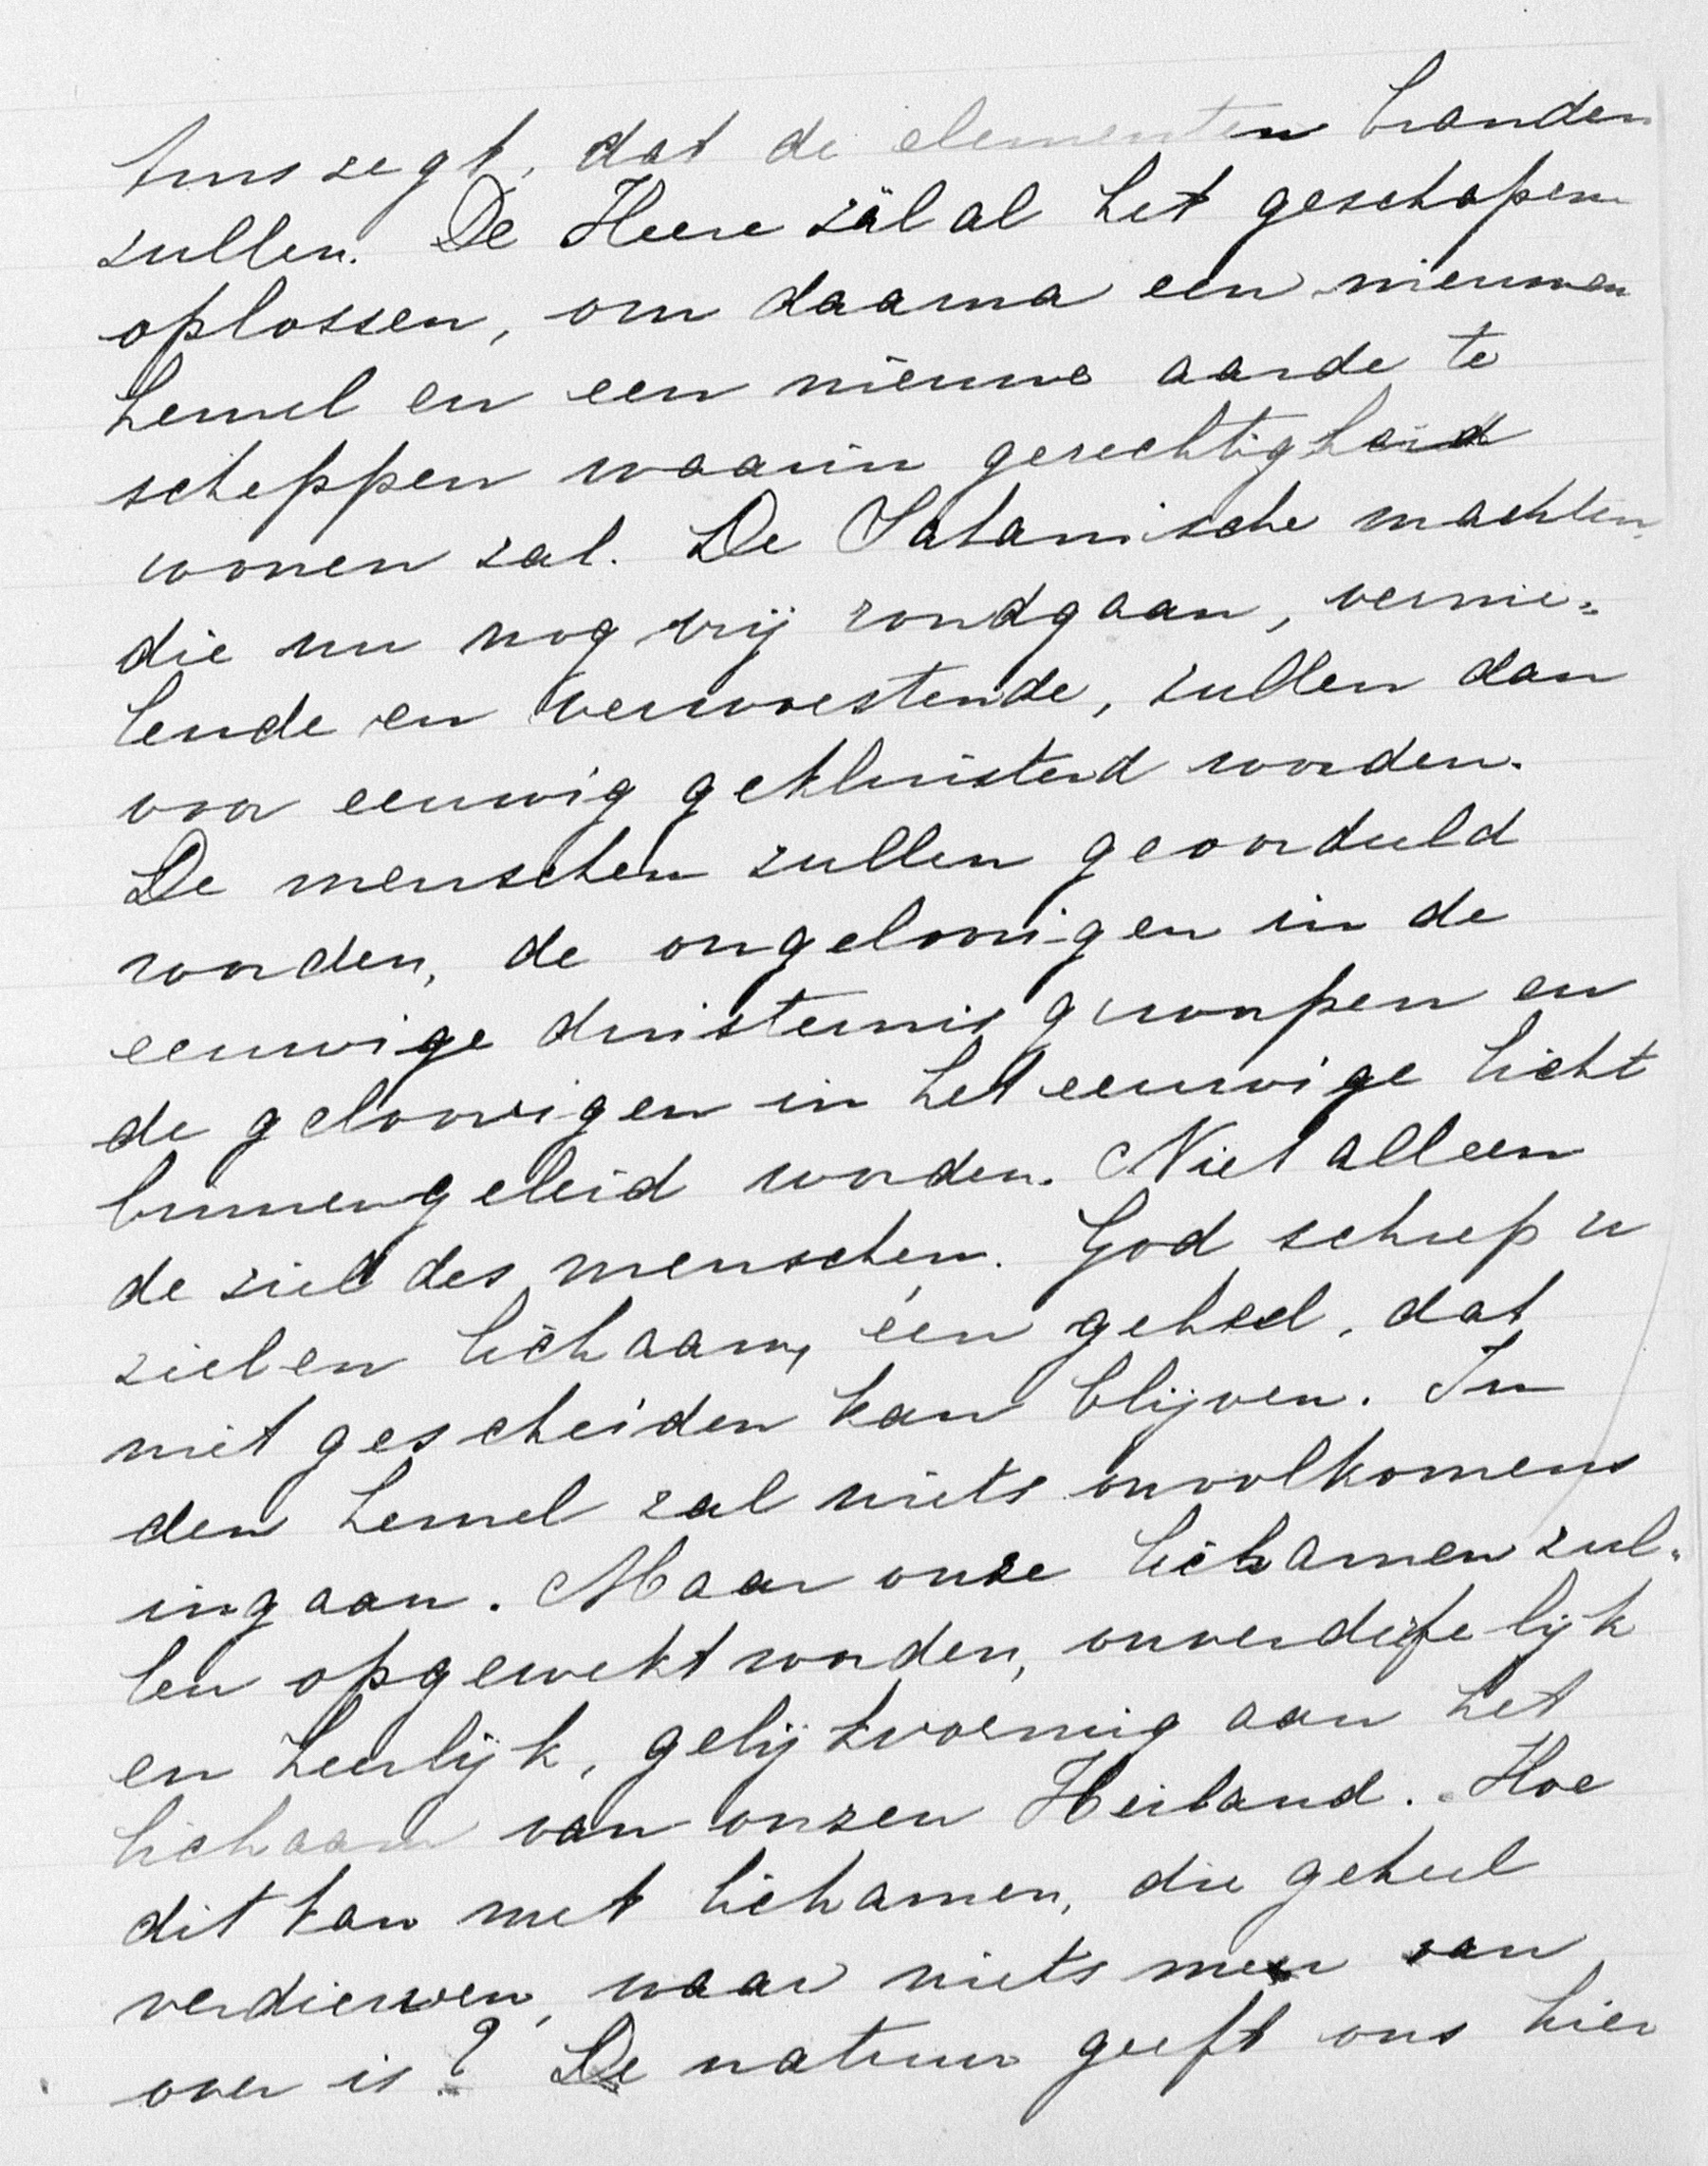 trus zegt, dat de elementen branden
zullen. De Heere zàl al het geschapen
oplossen, om daarna een nieuwen
hemel en een nieuwe aarde te
scheppen waarin gerechtigheid
wonen zal. De Satanische machten
die nu nog vrij rondgaan, vernie=
lende en verwoestende, zullen dan
voor eeuwig gekluisterd worden.
De menschen zullen geoordeeld
worden, de ongelovigen in de
eeuwige duisternis geworpen en
de geloovigen in het eeuwige licht
binnengeleid worden. Niet alleen
de ziel des menschen. God schiep u
ziel en lichaam, één geheel, dat
niet gescheiden kan blijven. In
den hemel zal niets onvolkomens
ingaan. Maar onze lichamen zul=
len opgewekt worden, onverderfelijk
en heerlijk, gelijkvormig aan het
lichaam van onzen Heiland. Hoe
dit kan met lichamen, die geheel
verdierven, waar niets meer van
over is? De natuur geeft ons hier